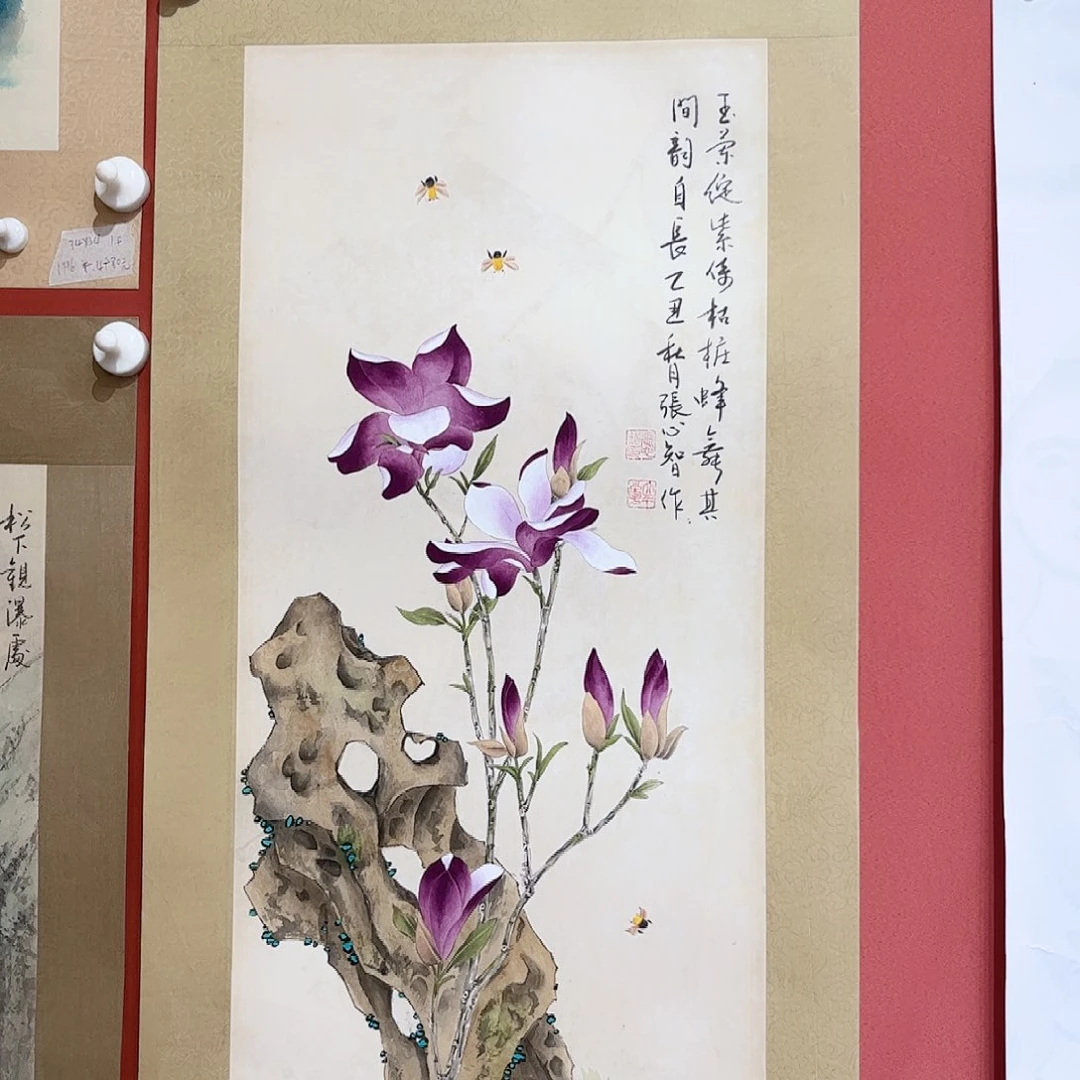 玉蘭綻紫倚枯樁蜂舞其
間韻自長乙丑秋月張心智作
松下觀瀑處